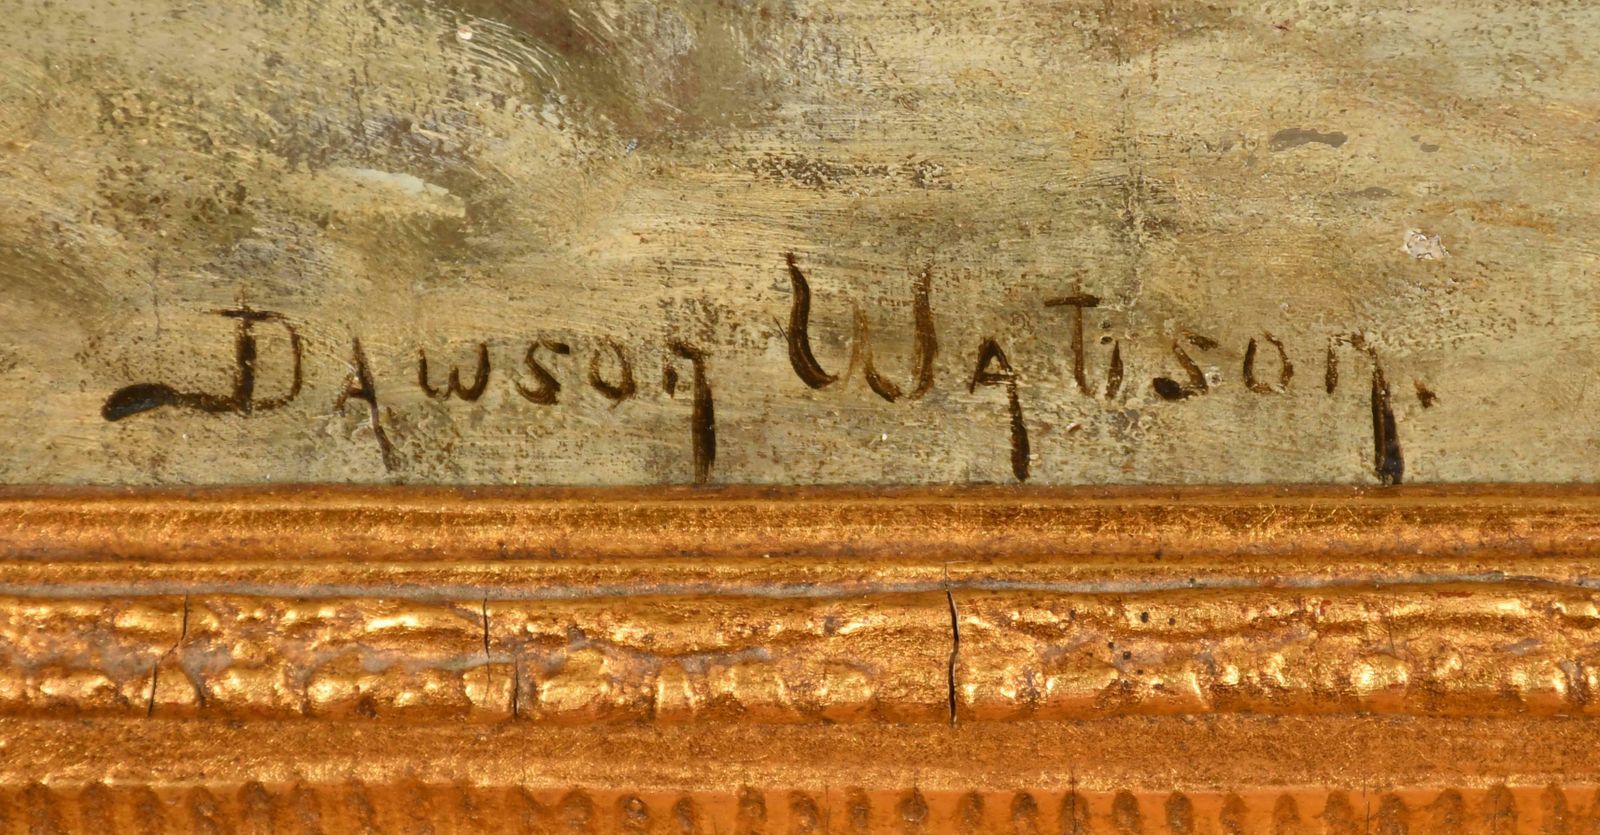 Dawson Watson.